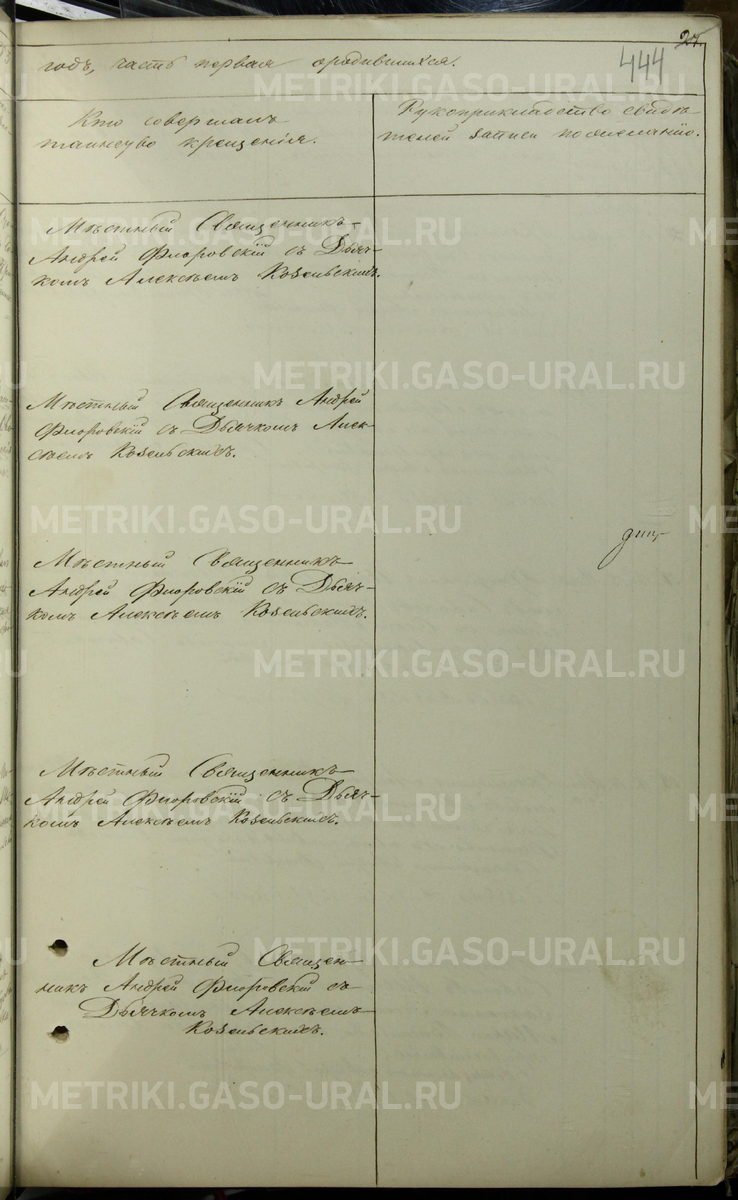 27.
444
годъ, часть первая о родившихся.
Кто совершалъ
таинство крещенія.
Рукоприкладство свидѣ-
телей записи по желанію.
Мѣстный Священникъ
Андрей Флоровскій съ Дьяч-
комъ Алексѣемъ Козельскимъ.
Мѣстный Священникъ Андрей
Флоровскій съ Дьячкомъ Алек-
сѣемъ Козельскимъ.
Мѣстный Священникъ
Андрей Флоровскій съ Дьяч-
комъ Алексѣемъ Козельскимъ.
Мѣстный Священникъ
Андрей Флоровскій съ Дьяч-
комъ Алексѣемъ Козельскимъ.
Мѣстный Священ-
никъ Андрей Флоровскій съ
Дьячкомъ Алексѣемъ
Козельскимъ.
METRIKI.GASO-URAL.RU